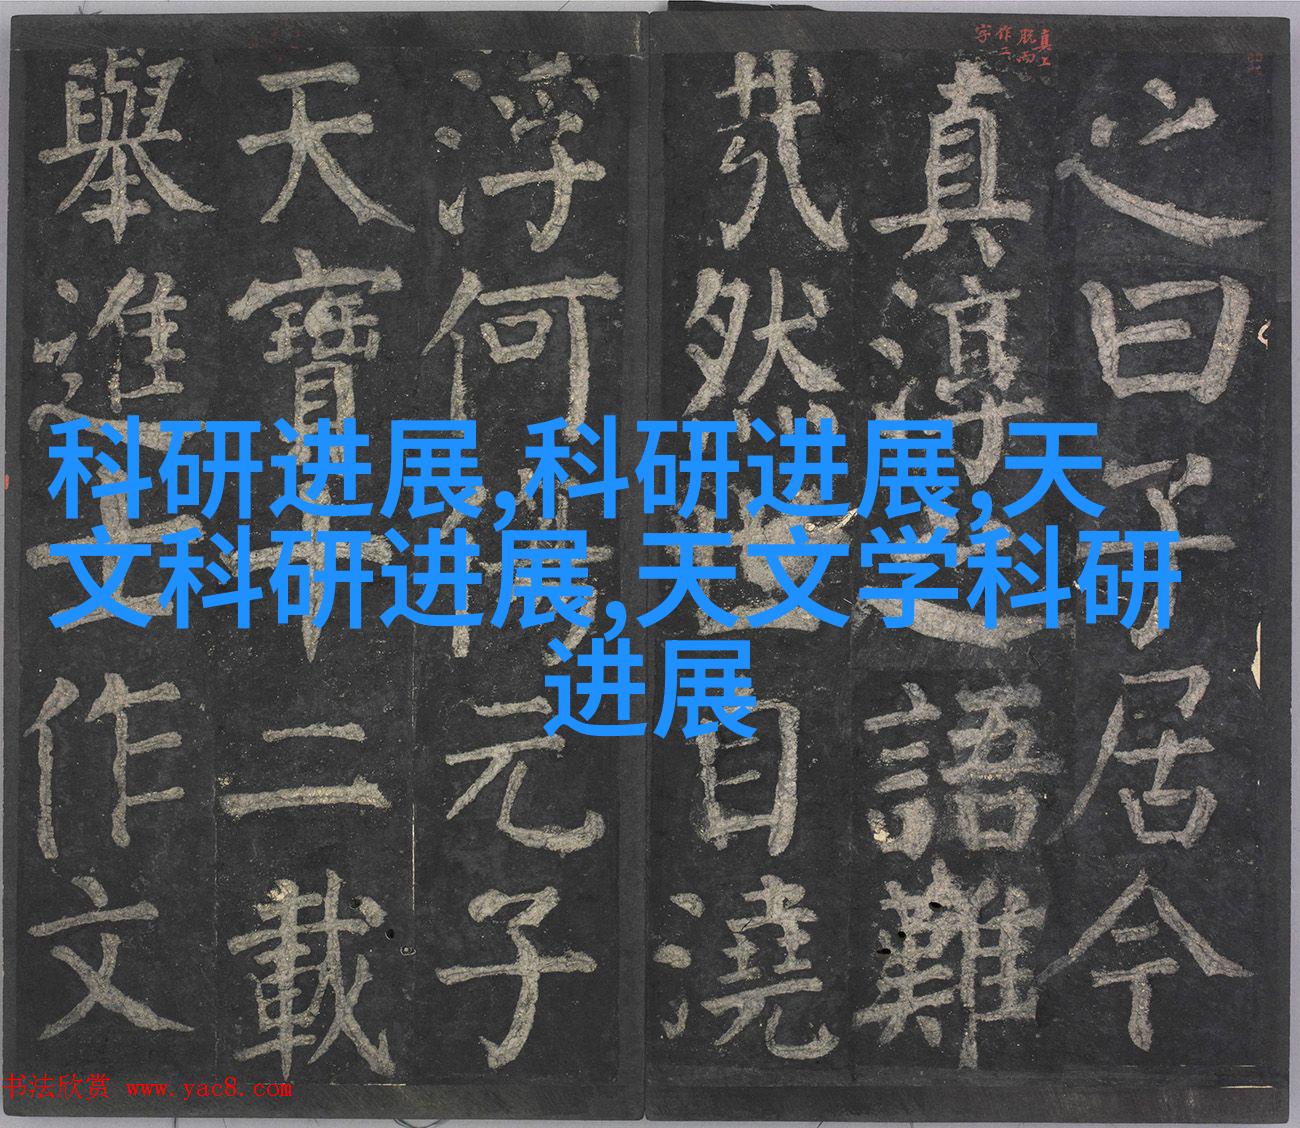 科研进展,科研进展,天
文科研进展,天文学科研
进展
之曰子居今
真淳之語難
哉然世自澆
浮何傷元子
天寶十二載
舉進士作文
真上
脱而
作二
字
书法欣赏 www.yac8.com